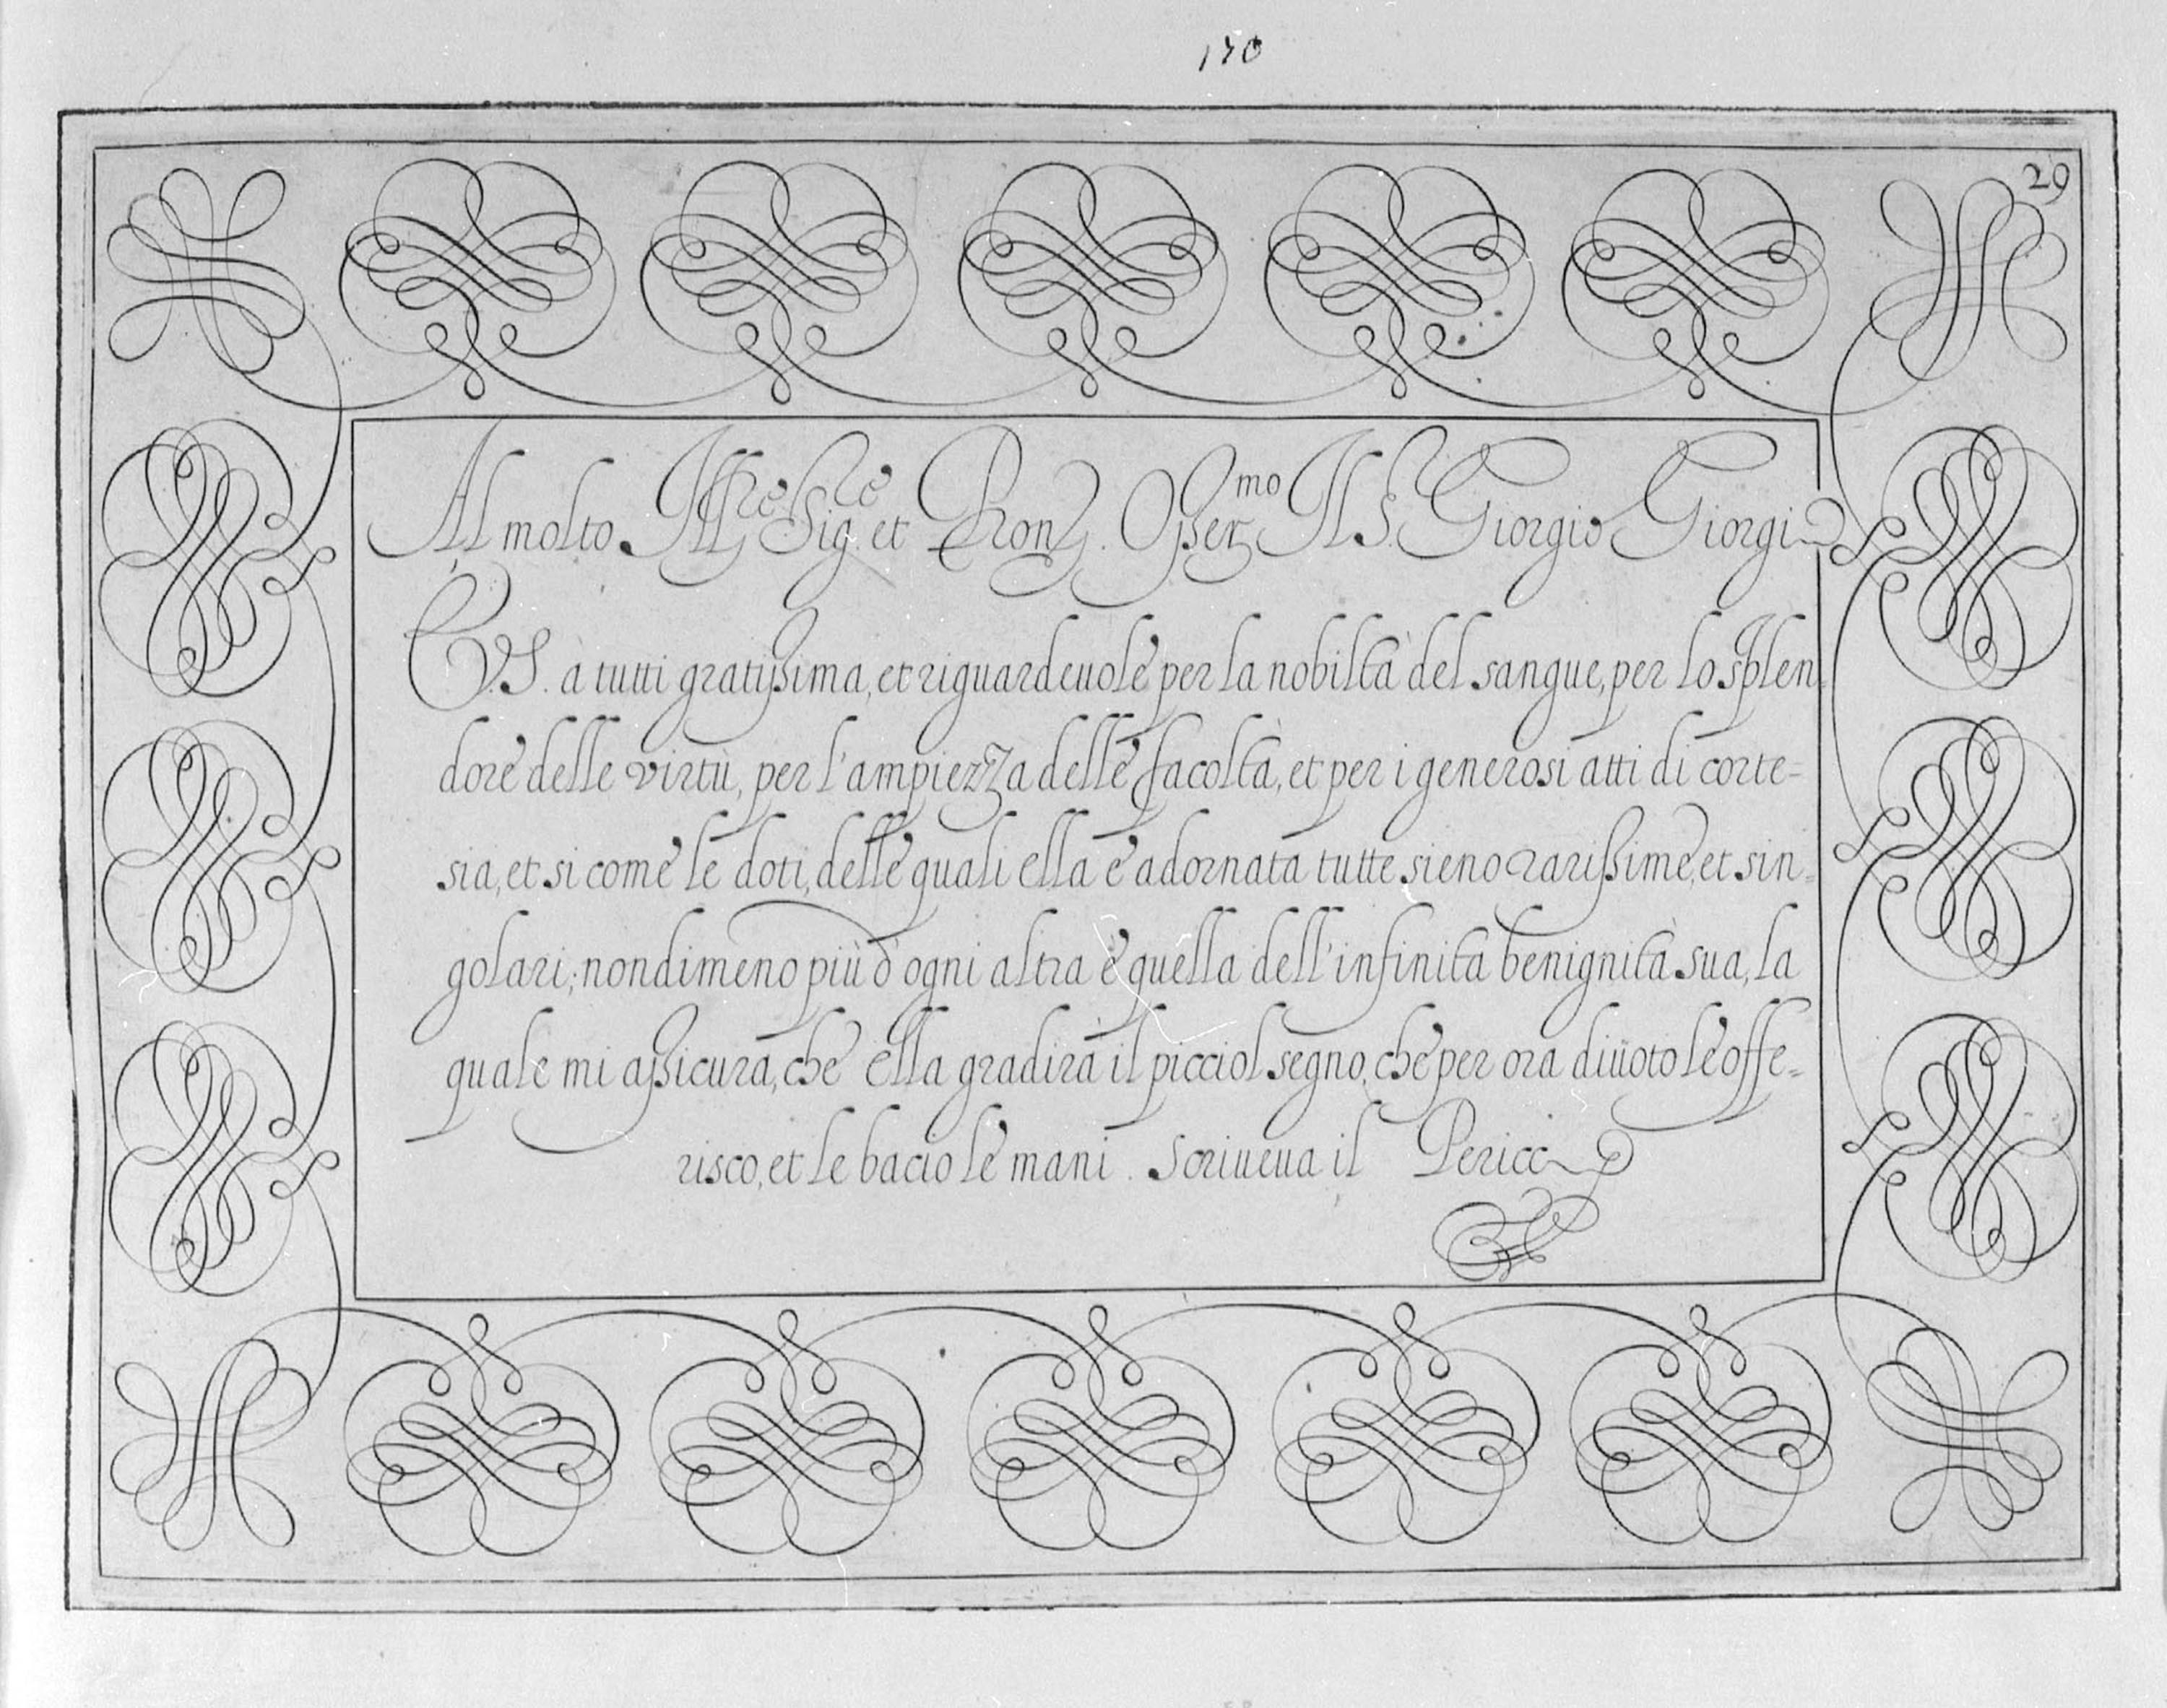 170
29
Al molto Ill.re Sig.re et Pron. Osser.mo Il S. Giorgio Giorgi
V.S. à tutti gratissima, et riguardeuole per la nobiltà del sangue, per lo splen
dore delle virtù, per l'ampiezza delle facoltà, et per i generosi atti di corte=
sia, et si come le doti, delle quali ella è adornata tutte sieno rarissime, et sin=
golari; nondimeno più d'ogni altra è quella dell'infinita benignità sua, la
quale mi assicura, che ella gradirà il picciol segno, che per ora diuoto le offe=
risco, et le bacio le mani. Scriueua il Pericc